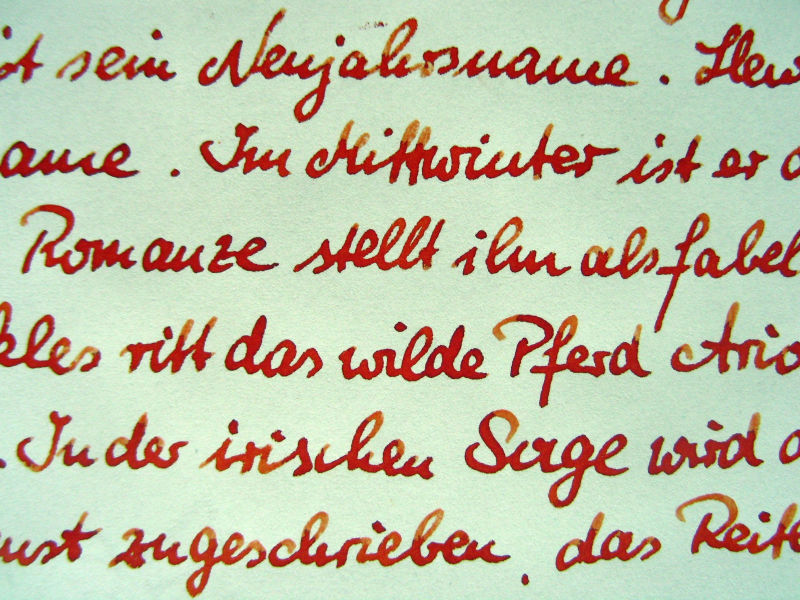 ist sein Neujahrsname. Hew
ame. Im Mittwinter ist er d
Romanze stellt ihn als fabel
kles ritt das wilde Pferd Ario
. In der irischen Sage wird d
unst zugeschrieben, das Reite